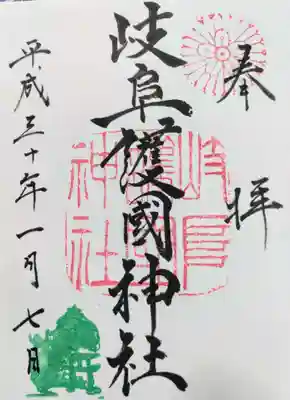 奉拝
岐阜護國神社
平成三十年一月七日
岐阜
護國
神社